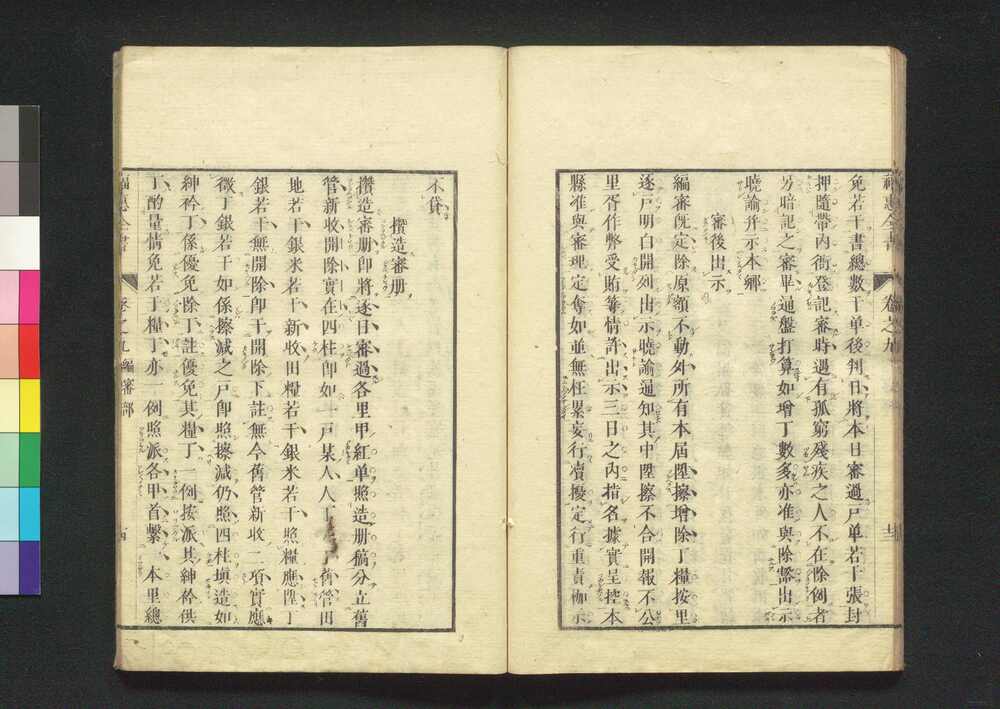 福惠全書 卷之九
免若干書總數于单後判日將本日審過戸单若干張封
押隨帶内衙登記審時遇有孤窮殘疾之人不在除例者
另暗記之審畢通盤打算如增丁數多亦准與除豁出示
曉諭幷示本鄉
審後出示
編審旣定除原額不動外所有本屆陞擦增除丁糧按里
逐戸明白開列出示曉諭通知其中陞擦不合開報不公
里胥作弊受賄等情許出示三日之内指名據實呈控本
縣准與審理定奪如並無枉累妄行凟擾定行重責枷示
不貸
攢造審册
攢造審册卽將逐日審過各里甲紅单照造册稿分立舊
管新收開除實在四柱卽如一戸某人人丁 丁舊管田
地若干銀米若干新收田糧若干銀米若干照糧應陞丁
銀若干無開除卽于開除下註無今舊管新收二項實應
徵丁銀若干如係擦減之戸卽照擦減仍照四柱塡造如
紳衿丁係優免除丁註優免其糧丁一例按派其紳衿供
丁酌量情免若干糧丁亦一例照派各甲首繫一本里總
福惠全書 卷之九 編審部 十四